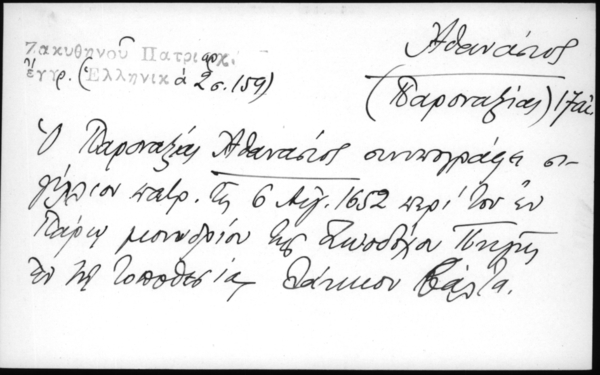 Ζακυθηνοῦ Πατριαρχ.
ἔγγρ. (Ἑλληνικά 2 σ. 159)
Ἀθανάσιος
(Παροναξίας) 17 αἰ.
Ὁ Παροναξίας Ἀθανάσιος συνυπογράφει σι-
γίλλιον πατρ. τῆς 6 Αὐγ. 1652 περὶ τοῦ ἐν
Πάρῳ μονυδρίου τῆς Ζωοδόχου Πηγῆς
ἐν τῇ τοποθεσίᾳ Λάκκου